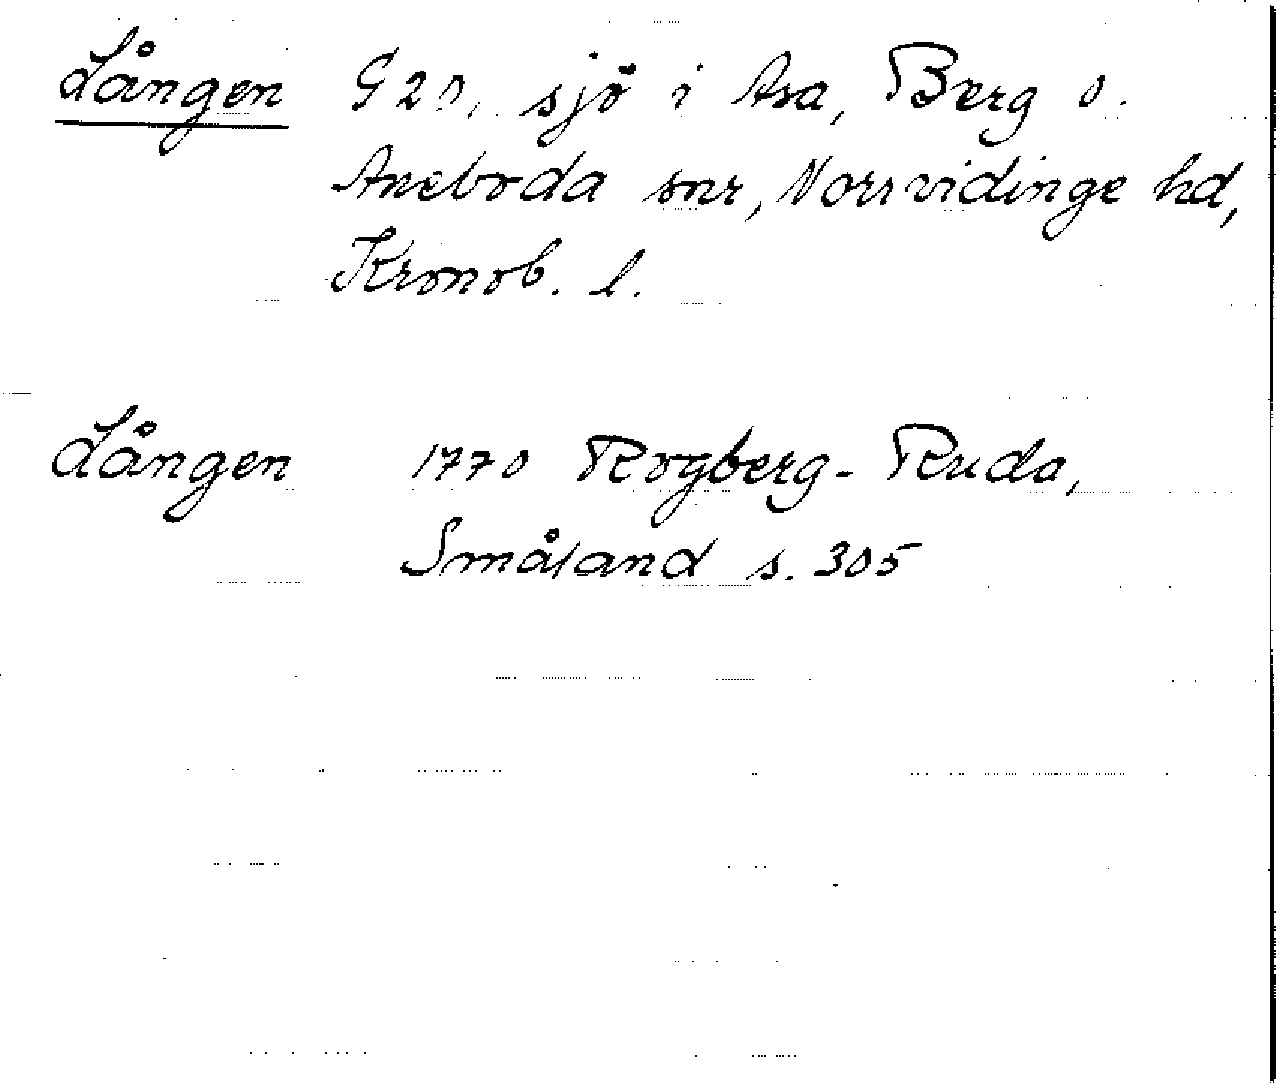 Lången G 20, sjö i Asa, Berg o.
Aneboda snr, Norrvidinge hd,
Kronob. l.
Lången 1770 Rogberg-Ruda,
Småland s. 305